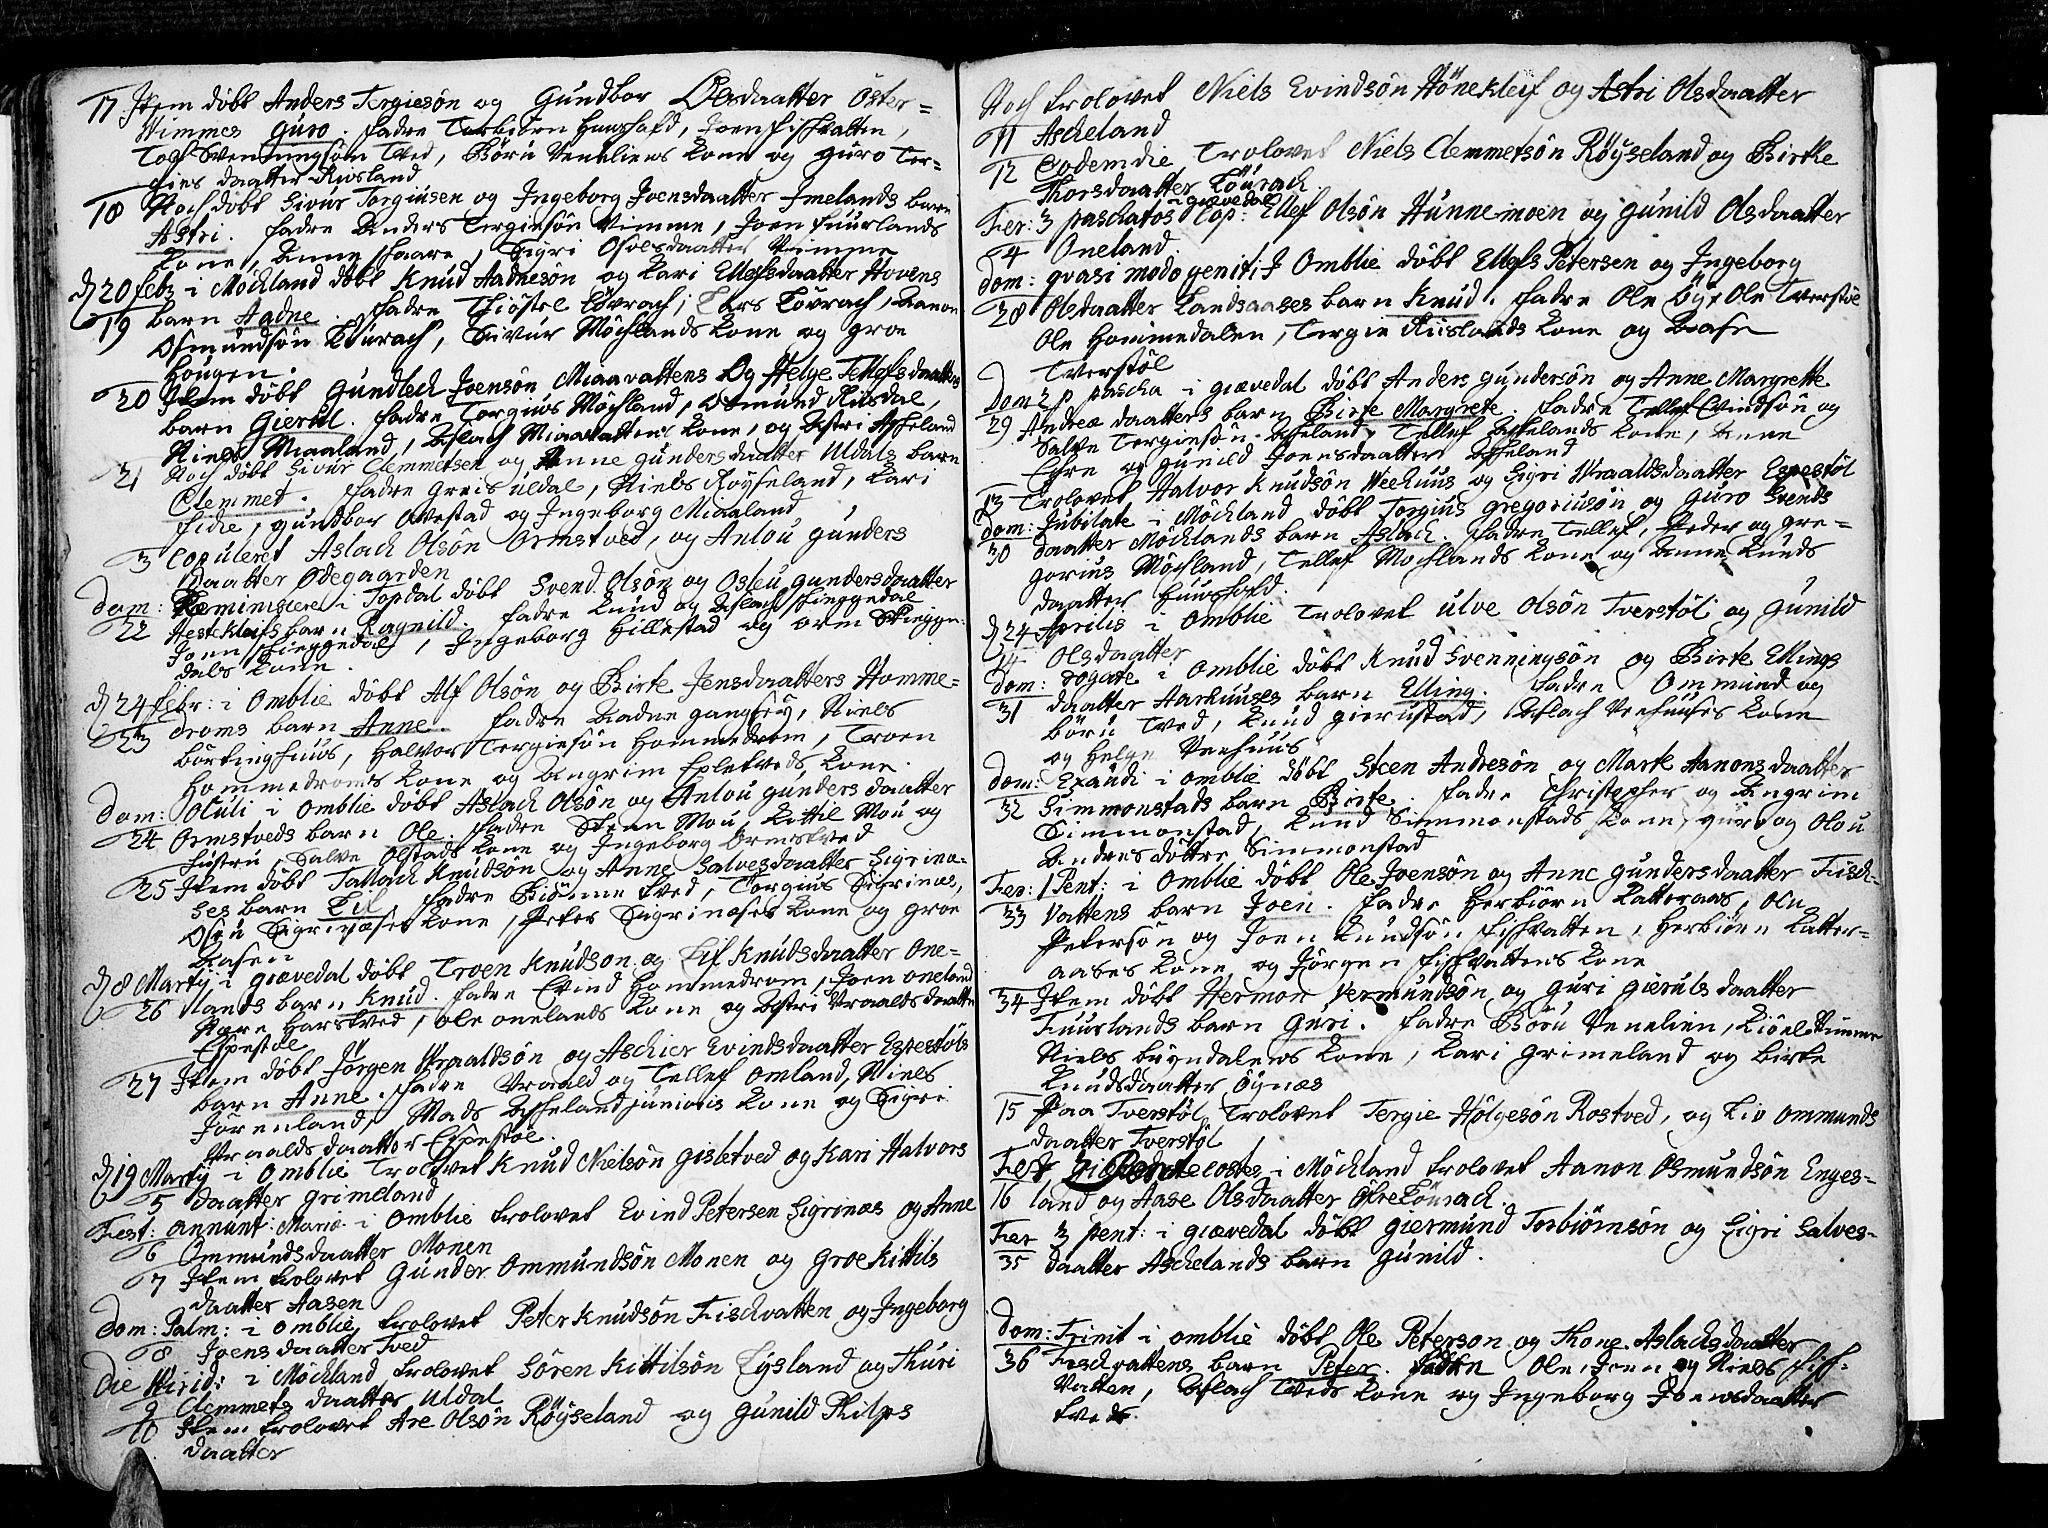 17. Item döbt Anders Tergiesøn og Gundbor Olsdaatter Öster=
Wimmes Guro. Fadre Torbiörn Huusfold, Joen Fischvatten,
Tolf Svenningsøn Tved, Börü Veneliens Kone og Guro Ter=
gies daatter Risland
18 Noch döbt Sivür Torgiusen og Ingeborg Joensdaatter Imelands barn
Astri. Fadre Anders Tergiesøn Vimme, Joen Fuurlands
Kone, Anne Skaare, Sigri Osolsdaatter Vimme
d 20 Febr i Möckland döbt Knud Aadnesøn og Kari Ellefsdaatter Hovens
19 barn Aadne. Fadre Tiöstel Lövrach, Lars Lövrach, Aanon
Osmundsøn Lövrach, Sivur Möchlands Kone og Groe
Hougen.
20 Item döbt Gundlech Joensøn Miaavattens Og Helge Tellefsdaatters
barn Gierul. Fadre Torgius Möchland, Osmund Risdal,
Niels Miaaland, Aslach Miaavattens Kone, og Astri Ascheland
21 Noch döbt Sivür Clemmetsen og Anne Gundersdaatter Uldals barn
Clemmet. Fadre Greis Uldal, Niels Röyseland, Kari
Fiche, Gundbor Ovestad og Ingeborg Miaaland
3 Copuleret Aslach Olsön Ormstved, og Anlou Gunders
daatter Ödegaarden
Dom: Reminiscere i Topdal döbt Svend Olsøn og Osleu Gundersdaatter
22 Hestekleifs barn Ragnild. Fadre Knud og Aslach Skieggedal
Joen Skieggedal, Ingeborg Hillestad og Orm Skiegge-
dals Kone.
d 24 Febr: i Omblie döbt Alf Olsøn og Birte Jensdaatters Homme=
23 droms barn Anne. Fadre Aadne Gangsey, Niels
Börtinghuus, Halvor Tergiesøn Hommedrom, Troen
Hommedroms Kone og Angrim Epletveds Kone.
Dom: Oculi i Omblie döbt Aslach Olsøn og Anlou Gunders daatter
24 Ormstveds barn Ole. Fadre Steen Mou, Kittil Mou og
hustru, Salve Olstads Kone og Ingeborg Ormstved
25 Item döbt Tallach Knudsøn og Anne Salvesdaatter Sigrinæ=
ses barn Lif. Fadre Biörnne Tved, Torgius Sigrinæs,
Oslu Sigrinæses Kone, Peter Sigrinæses Kone og Groe
Aasen
d 8 Martij i Giævedal döbt Troen Knudson og Lif Knudsdaatter One=
26 lands barn Knud. Fadre Evind Hommedrom, Joen Oneland
Aare Harstved, Ole Onelands Kone og Astri Vraalds daatter
Espestöl
27 Item döbt Jörgen Wraaldsøn og Aschier Evindsdaatter Espestöls
barn Anne. Fadre Vraald og Tellef Omland, Niels
Jorenland, Mads Aschelandjunioris Kone og Sigri
Wraalds daatter Espestöl.
d 19 Martij i Omblie Trolovet Knud Nielsön Gisletved og Kari Halvors
5 daatter Grimeland
Fest: annunt: Mariæ i Omblie trolovet Evind Petersen Sigrinæs og Anne
6 Ommundsdaatter Monen
7 Item trolovet Gunder Ommundsøn Monen og Groe Kittils
daatter Aasen
Dom: Palm: i Omblie, trolovet Peter Knudsön Fischvatten og Ingeborg
8 Joensdaatter Tved
Die Virid: i Möchland trolovet Sören Kittilsön Lysland og Thuri
9 Clemmets daatter Uldal
10 Item trolovet Are Olsøn Röyseland og Gunild Philps
daatter
Noch trolovet Niels Evindsøn Höneklejf og Astri Olsdaatter
11 Ascheland
12 Eodem die Trolovet Niels Clemmetsøn Röyseland og Birtte
Thorsdaatter Löurach
Fer: 3 paschatos i Giævedal Cop: Ellef Olsön Hünnemoen og Gunild Olsdaatter
4 Oneland
Dom: qvasi modo geniti I Omblie döbt Ellefs Petersen og Ingeborg
28 Olsdaatter Landsaases barn Knud. Fadre Ole Ly, Ole Tverstöl
Ole Hommedalen, Tergie Rislands Kone og Aase
Tverstöl
Dom 2 p pascha i Giævedal döbt Anders Gundersøn og Anne Margrette
29 Andreæ daatters barn Birte Margrete. Fadre Tellef Evindsøn og
Salve Tergiesøn Ascheland, Tellef Aschelands Kone, Anne
og Gunild Joensdaatter Ascheland
13 Trolovet Halvor Knudsøn Veehuus og Sigri Wraaldsdaatter Espestöl
Dom: Jubilate i Möchland döbt Torgius Gregoriusøn og Guro Svends
30 daatter Möchlands barn Aslach. Fadre Tellef, Peder og Gre=
gorius Möchland, Tellef Mochlands Kone og Anne Knuds
daatter Huusfold.
d 24 Aprilis i Omblie Trolovet Ulve Olsøn Tverstöl og Gunild
14 Olsdaatter
Dom: rogate i Omblie döbt Knud Svenningsøn og Birte Ellings
31 daatter Aarhuuses barn Elling. Fadre Ommund og
Böru Tved, Knud Gierustad, Aslach Veehuuses Kone
og Helge Veehuus
Dom: Exaudi i Omblie döbt Steen Andresøn og Marte Aanonsdaatter
32 Simmonstads barn Birte. Fadre Christopher og Angrim
Simmonstad, Knud Simmonstads Kone, Guro og Olou
Andres döttre Simmonstad
Fer: 1 Pent: i Omblie döbt Ole Joensøn og Anne Gundersdaatter Fisch-
33 Vattens barn Joen. Fadre Herbiörn Katteraas, Ole
Petersøn og Joen Knudsøn Fischvatten, Herbiörn Katter-
aases Kone, og Jörgen Fischvattens Kone
34 Item döbt Hermon Vermundsøn og Guri Gierulsdaatter
Fuurslands barn Guri. Fadre Böru Venelien, Kiöel Vimme
Niels Bryndalens Kone, Kari Grimeland og Birte
Knudsdaatter Öynæs
15 Paa Tverstöl Trolovet Tergie Hölgesön Rostved, og Liv Ommunds
daatter Tverstöl
Fest 2 Pentecostes i Möchland trolovet Aanon Osmundsøn Enges=
16 land og Aase Olsdaatter Ökre Löurach.
Fer 3 pent: i Giævedal döbt Giermund Torbiörnsön og Sigri Salves=
35 daatter Aschelands barn Gunild.
Dom: Trinit i Omblie döbt Ole Peterson og Thone Aslachsdaatter
36 Fischvattens barn Peter. Fadre Ole, Joen og Niels Fisch-
Vatten, Aslach Tveds Kone og Ingeborg Joensdaatter
Tved.